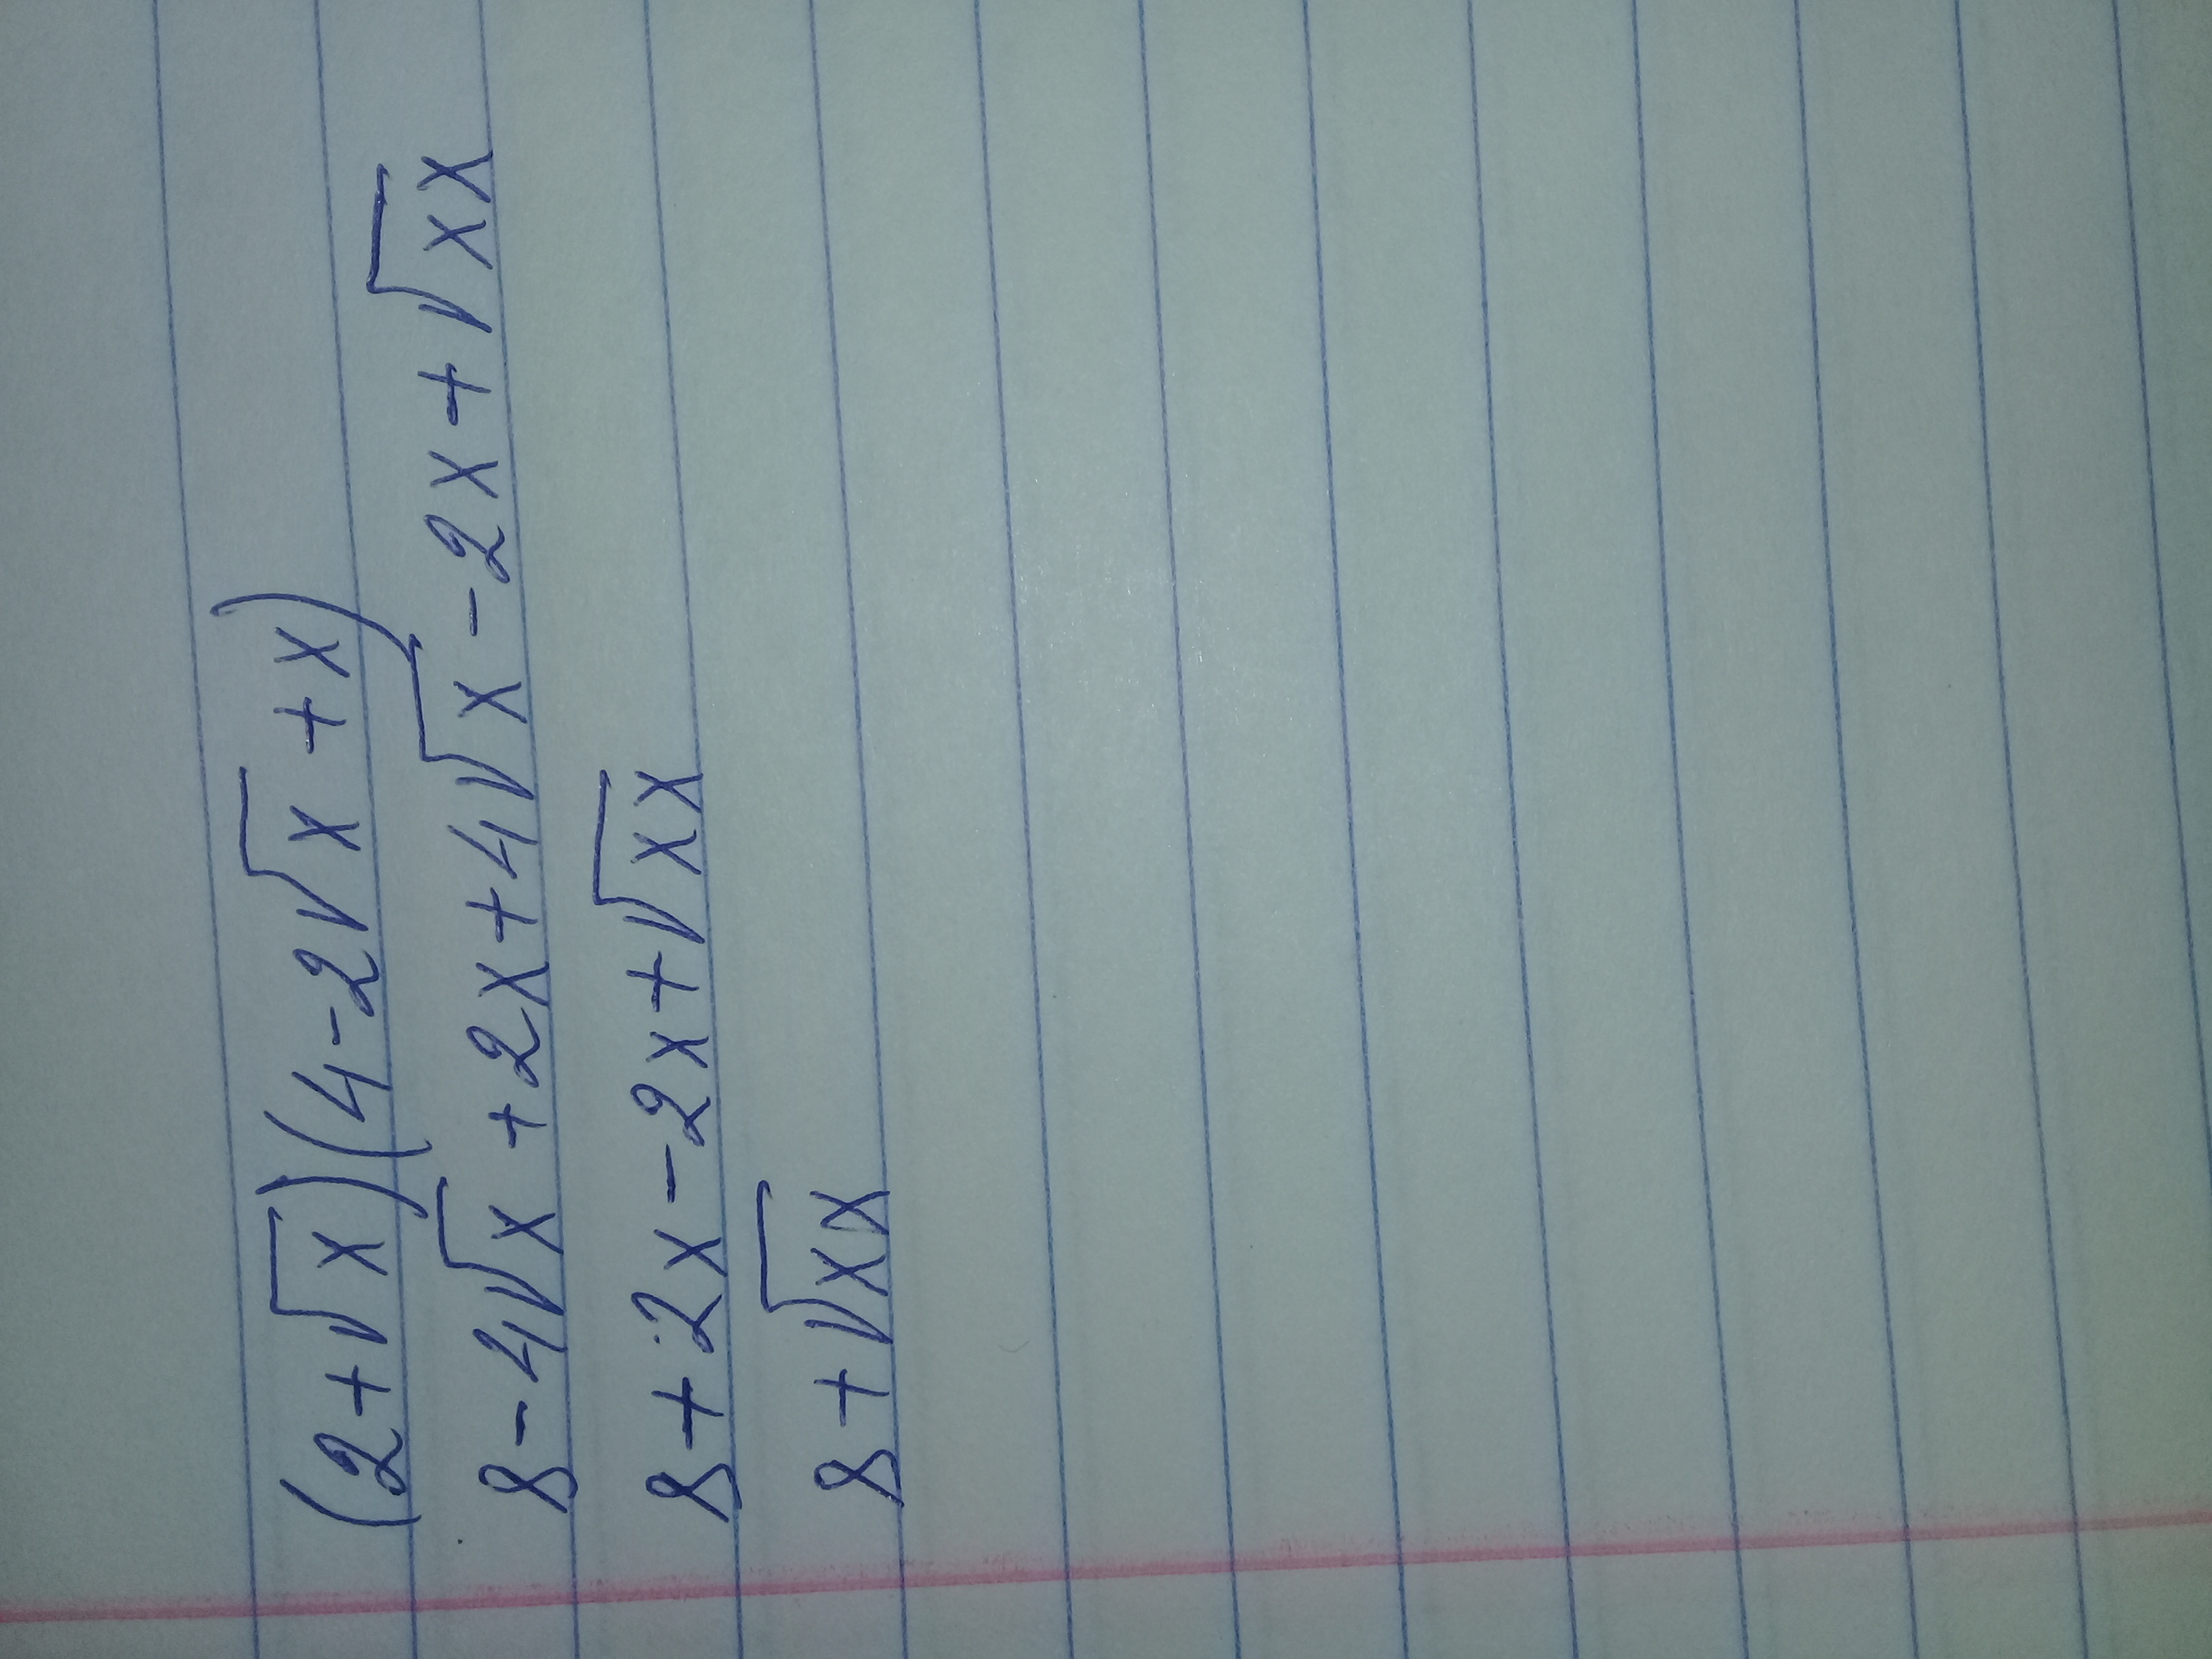 (2+√x)(4-2√x +x)
8-4√x +2x+4√x -2x+√xx
8+2x-2x+√xx
8+√xx